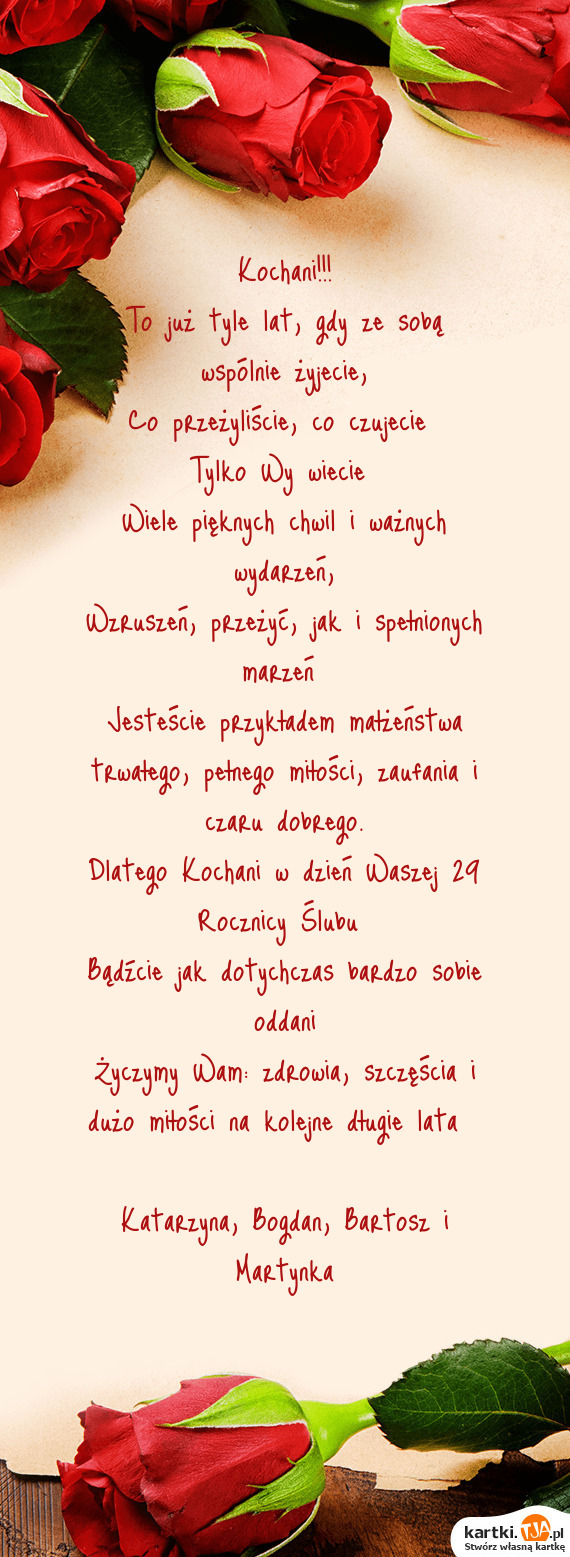 Kochani!!!
To już tyle lat, gdy ze sobą
wspólnie żyjecie,
Co przeżyliście, co czujecie
Tylko Wy wiecie
Wiele pięknych chwil i ważnych
wydarzeń,
Wzruszeń, przeżyć, jak i spełnionych
marzeń
Jesteście przykładem małżeństwa
trwałego, pełnego miłości, zaufania i
czaru dobrego.
Dlatego Kochani w dzień Waszej 29
Rocznicy Ślubu
Bądźcie jak dotychczas bardzo sobie
oddani
Życzymy Wam: zdrowia, szczęścia i
dużo miłości na kolejne długie lata
Katarzyna, Bogdan, Bartosz i
Martynka
kartki.TJA.pl
Stwórz własną kartkę